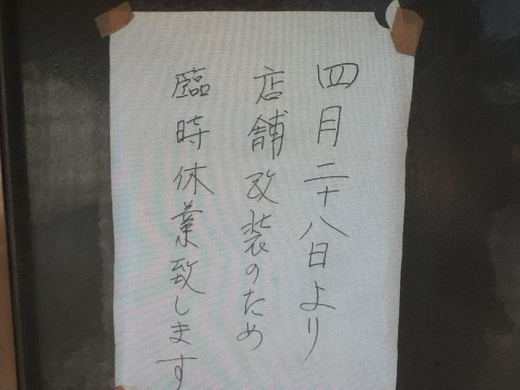 四月二十八日より
店舗改装のため
臨時休業致します